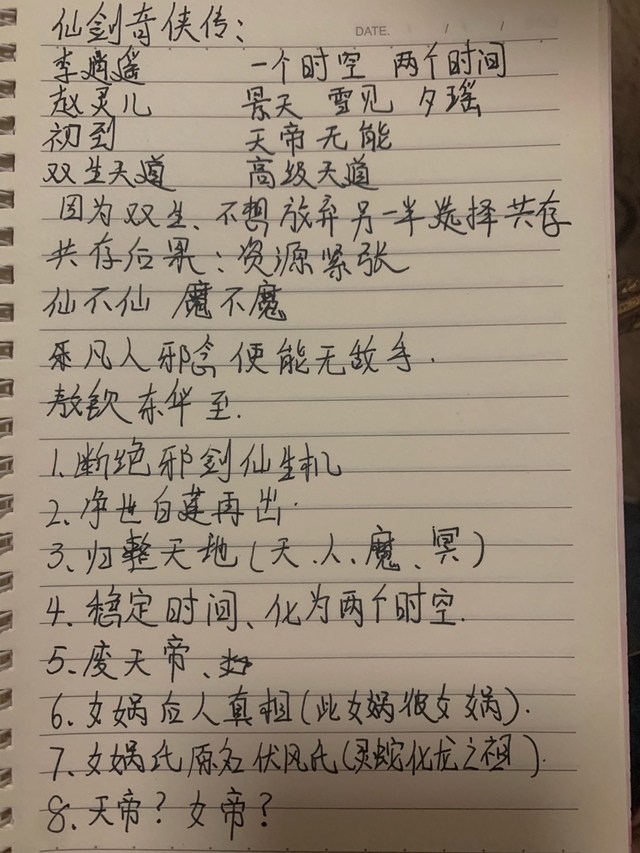 DATE.
仙剑奇侠传：
李逍遥 一个时空 两个时间
赵灵儿 景天 雪见 夕瑶
初到 天帝无能
双生天道 高级天道
因为双生、不想放弃另一半选择共存
共存后果：资源紧张
仙不仙 魔不魔
采凡人邪念便能无敌手.
敖钦东华至.
1.断绝邪剑仙生机
2.净世白莲再出.
3.归整天地(天.人、魔、冥)
4.稳定时间、化为两个时空.
5.废天帝、
6.女娲后人真相(此女娲彼女娲).
7.女娲氏原名伏风氏(灵蛇化龙之祖).
8.天帝？女帝？